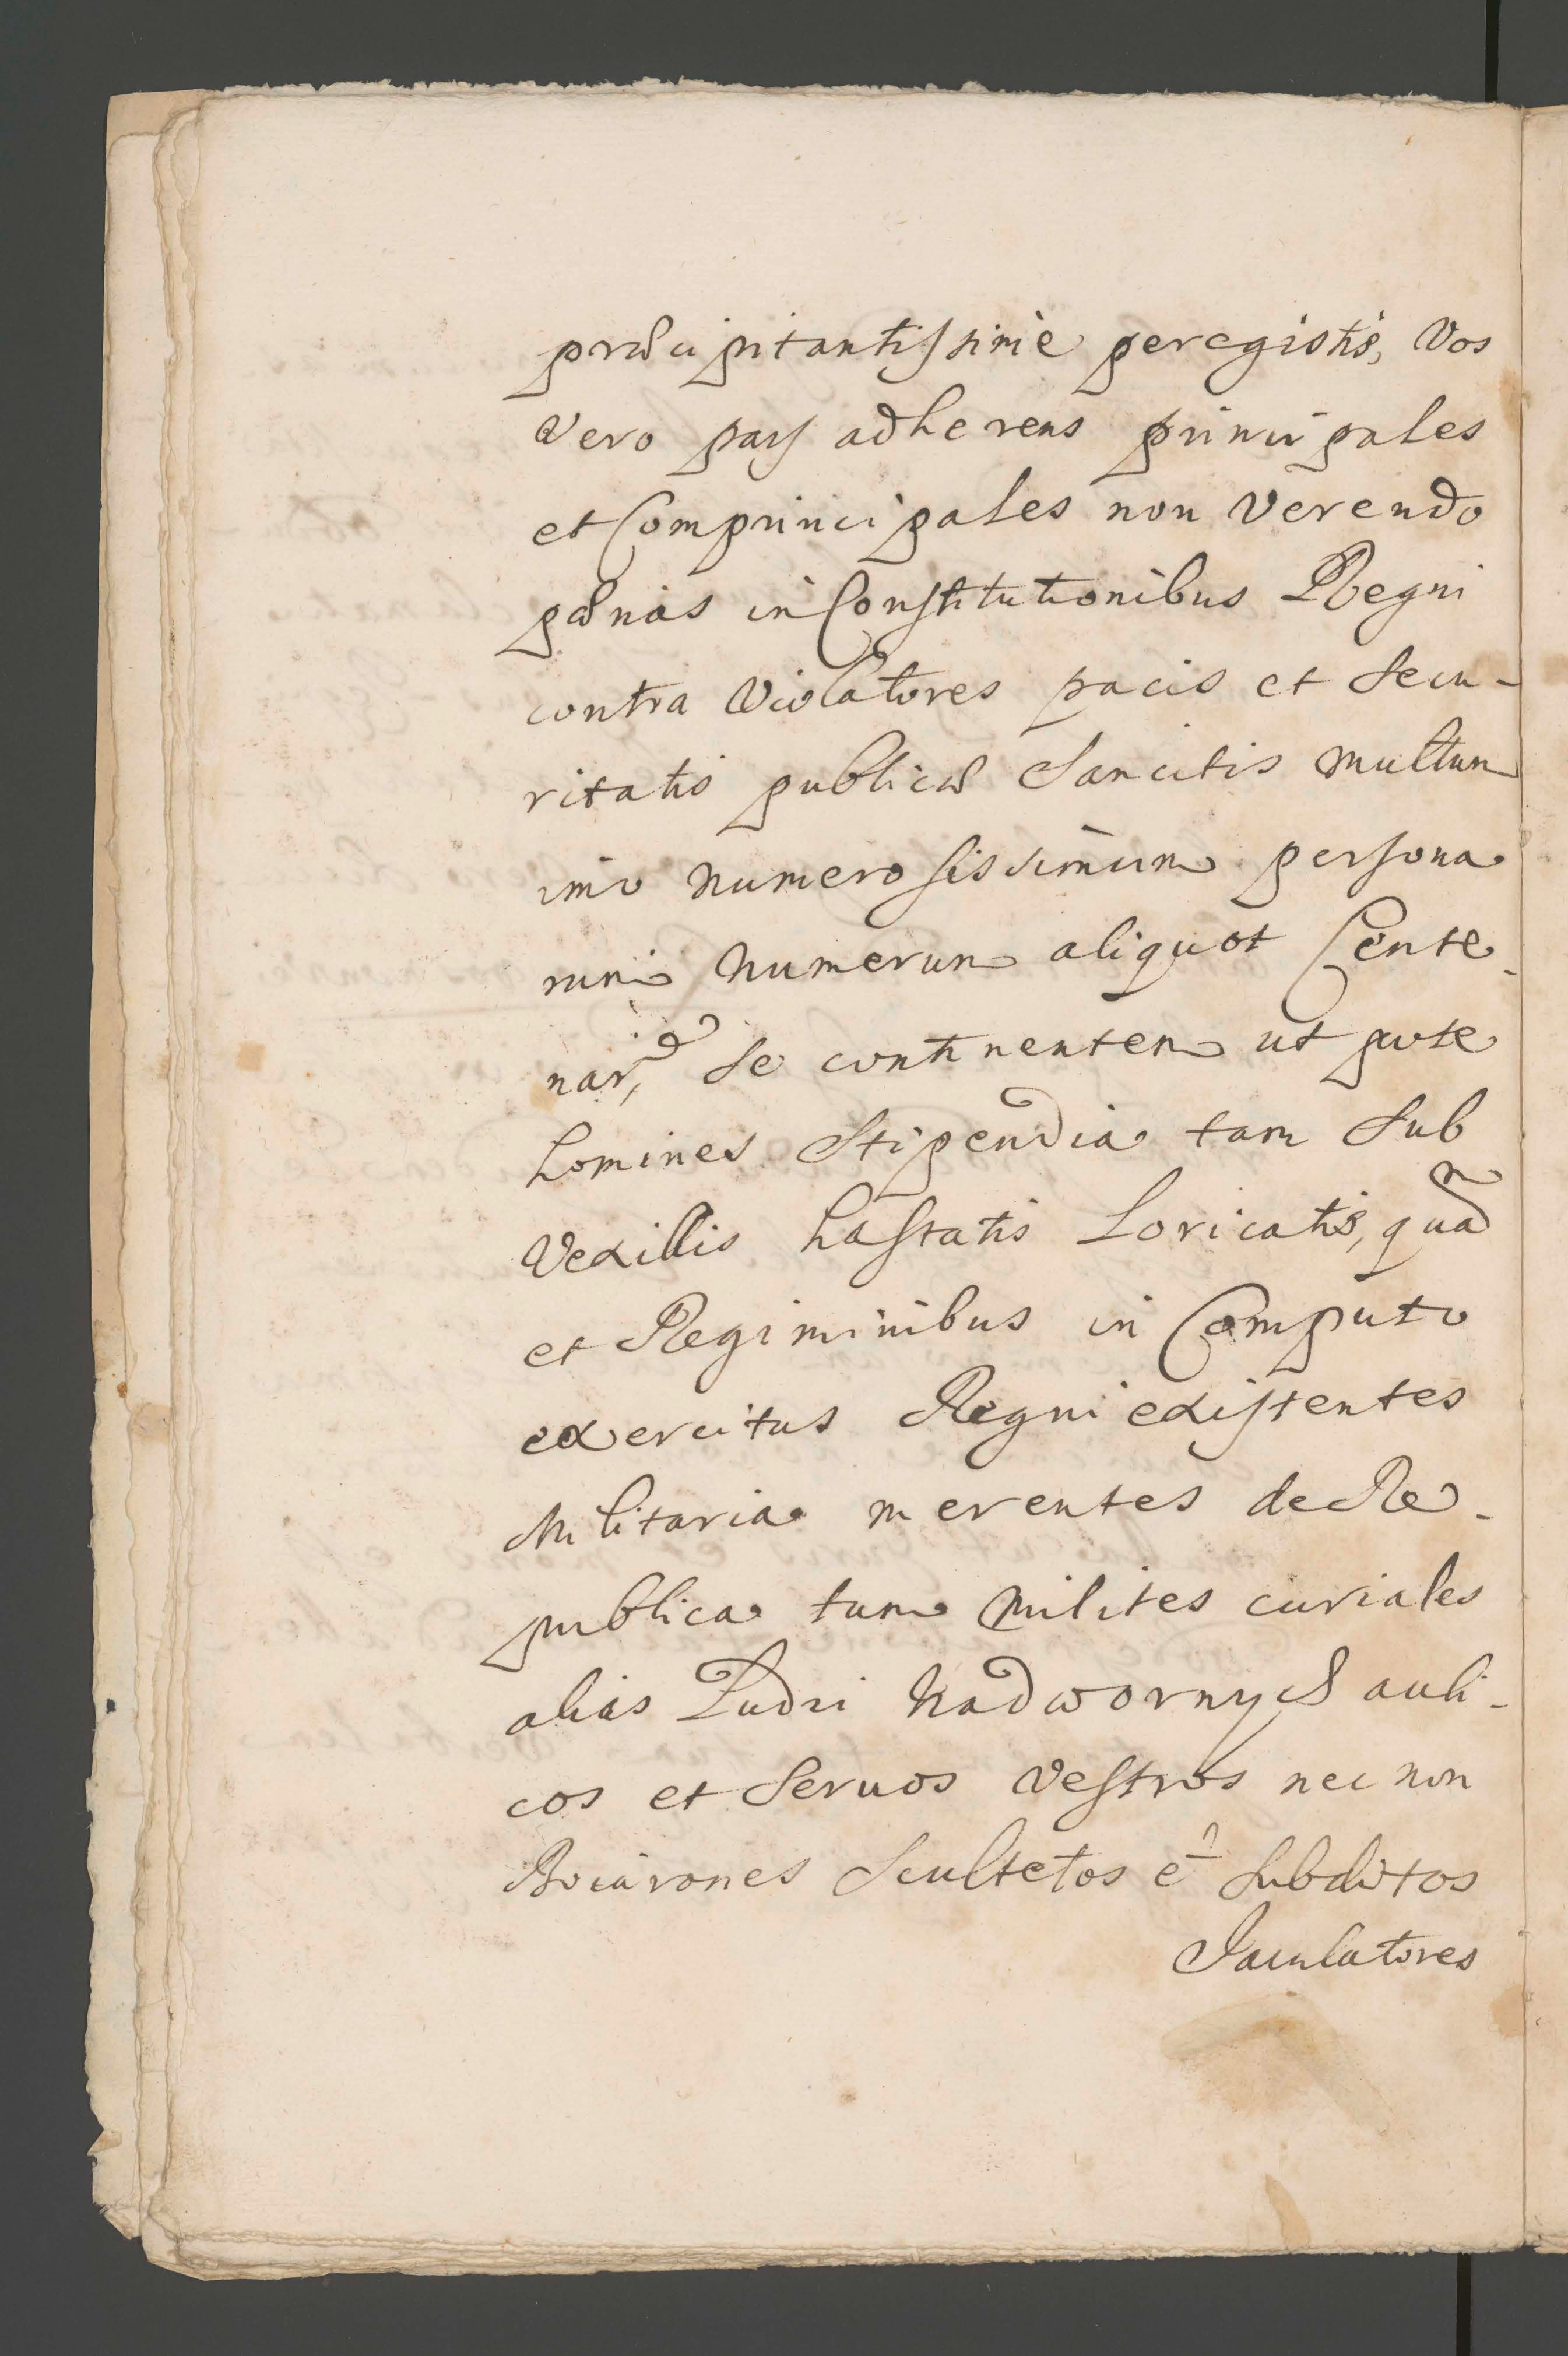 præcipitantissime peregistis, Vos
vero pars adherens principales
et Comprincipales non Verendo
pænas in Constitutionibus Regni
contra Violatores pacis et Secu-
ritatis publicæ Sancitis multum
imo numerosissimum persona
rum numerum aliquot Cente-
nar, Se continentem ut pote
homines Stipendia tam Sub
Vexillis hastatis Loricatis, quam
et Regiminibus in Computo
exercitus Regni existentes
Militaria merentes de Re-
publica tum Milites curiales
alias Ludzi Nadwornych auli-
cos et Seruos Vestros nec non
Boiarones Scultetos et Subditos
Jaculatores